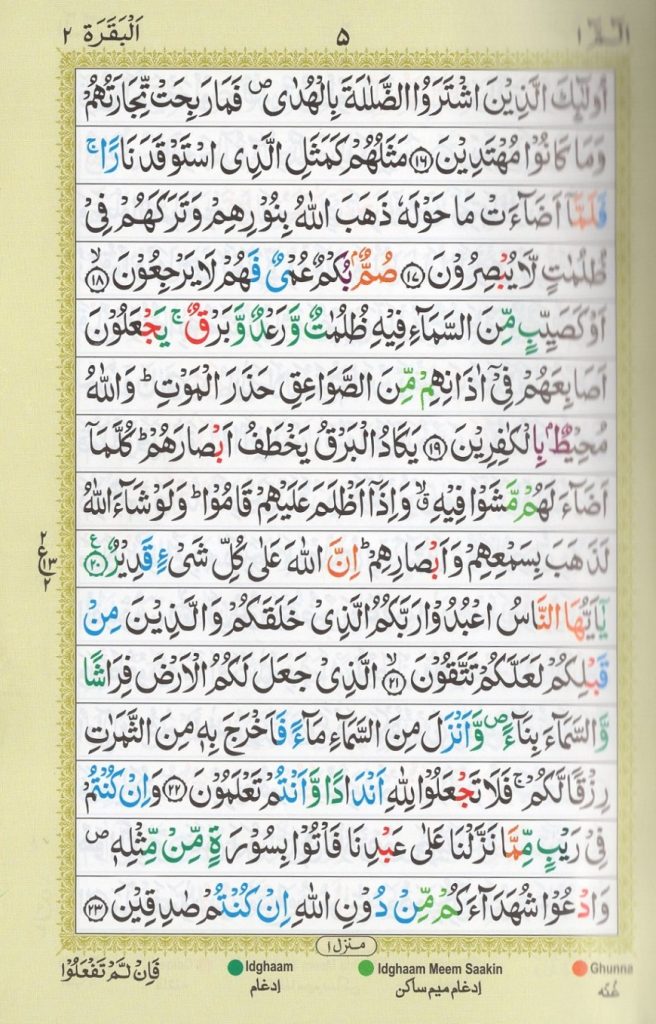 الٓمّٓ ۱ ۵ اَلْبَقَرَة ۲
اُولٰٓئِكَ الَّذِيْنَ اشْتَرَوُا الضَّلٰلَةَ بِالْهُدٰى ۪ فَمَا رَبِحَتْ تِّجَارَتُهُمْ
وَمَا كَانُوْا مُهْتَدِيْنَ ۝۱۶ مَثَلُهُمْ كَمَثَلِ الَّذِى اسْتَوْقَدَ نَارًا ۚ
فَلَمَّآ اَضَآءَتْ مَا حَوْلَهٗ ذَهَبَ اللّٰهُ بِنُوْرِهِمْ وَتَرَكَهُمْ فِىْ
ظُلُمٰتٍ لَّا يُبْصِرُوْنَ ۝۱۷ صُمٌّۢ بُكْمٌ عُمْىٌ فَهُمْ لَا يَرْجِعُوْنَ ۙ۝۱۸
اَوْ كَصَيِّبٍ مِّنَ السَّمَآءِ فِيْهِ ظُلُمٰتٌ وَّرَعْدٌ وَّبَرْقٌ ۚ يَجْعَلُوْنَ
اَصَابِعَهُمْ فِىْٓ اٰذَانِهِمْ مِّنَ الصَّوَاعِقِ حَذَرَ الْمَوْتِ ؕ وَاللّٰهُ
مُحِيْطٌۢ بِالْكٰفِرِيْنَ ۝۱۹ يَكَادُ الْبَرْقُ يَخْطَفُ اَبْصَارَهُمْ ؕ كُلَّمَآ
اَضَآءَ لَهُمْ مَّشَوْا فِيْهِ ۙۗ وَاِذَآ اَظْلَمَ عَلَيْهِمْ قَامُوْا ؕ وَلَوْ شَآءَ اللّٰهُ
لَذَهَبَ بِسَمْعِهِمْ وَاَبْصَارِهِمْ ؕ اِنَّ اللّٰهَ عَلٰى كُلِّ شَىْءٍ قَدِيْرٌ ۝۲۰ ع
۲ ع ۱۳ ۲
يٰٓاَيُّهَا النَّاسُ اعْبُدُوْا رَبَّكُمُ الَّذِىْ خَلَقَكُمْ وَالَّذِيْنَ مِنْ
قَبْلِكُمْ لَعَلَّكُمْ تَتَّقُوْنَ ۙ۝۲۱ الَّذِىْ جَعَلَ لَكُمُ الْاَرْضَ فِرَاشًا
وَّالسَّمَآءَ بِنَآءً ۪ وَّاَنْزَلَ مِنَ السَّمَآءِ مَآءً فَاَخْرَجَ بِهٖ مِنَ الثَّمَرٰتِ
رِزْقًا لَّكُمْ ۚ فَلَا تَجْعَلُوْا لِلّٰهِ اَنْدَادًا وَّاَنْتُمْ تَعْلَمُوْنَ ۝۲۲ وَاِنْ كُنْتُمْ
فِىْ رَيْبٍ مِّمَّا نَزَّلْنَا عَلٰى عَبْدِنَا فَاْتُوْا بِسُوْرَةٍ مِّنْ مِّثْلِهٖ ۪
وَادْعُوْا شُهَدَآءَكُمْ مِّنْ دُوْنِ اللّٰهِ اِنْ كُنْتُمْ صٰدِقِيْنَ ۝۲۳
منزل ۱
فَاِنْ لَّمْ تَفْعَلُوْا
Idghaam Idghaam Meem Saakin Ghunna
ادغام ادغام میم ساکن غنّہ